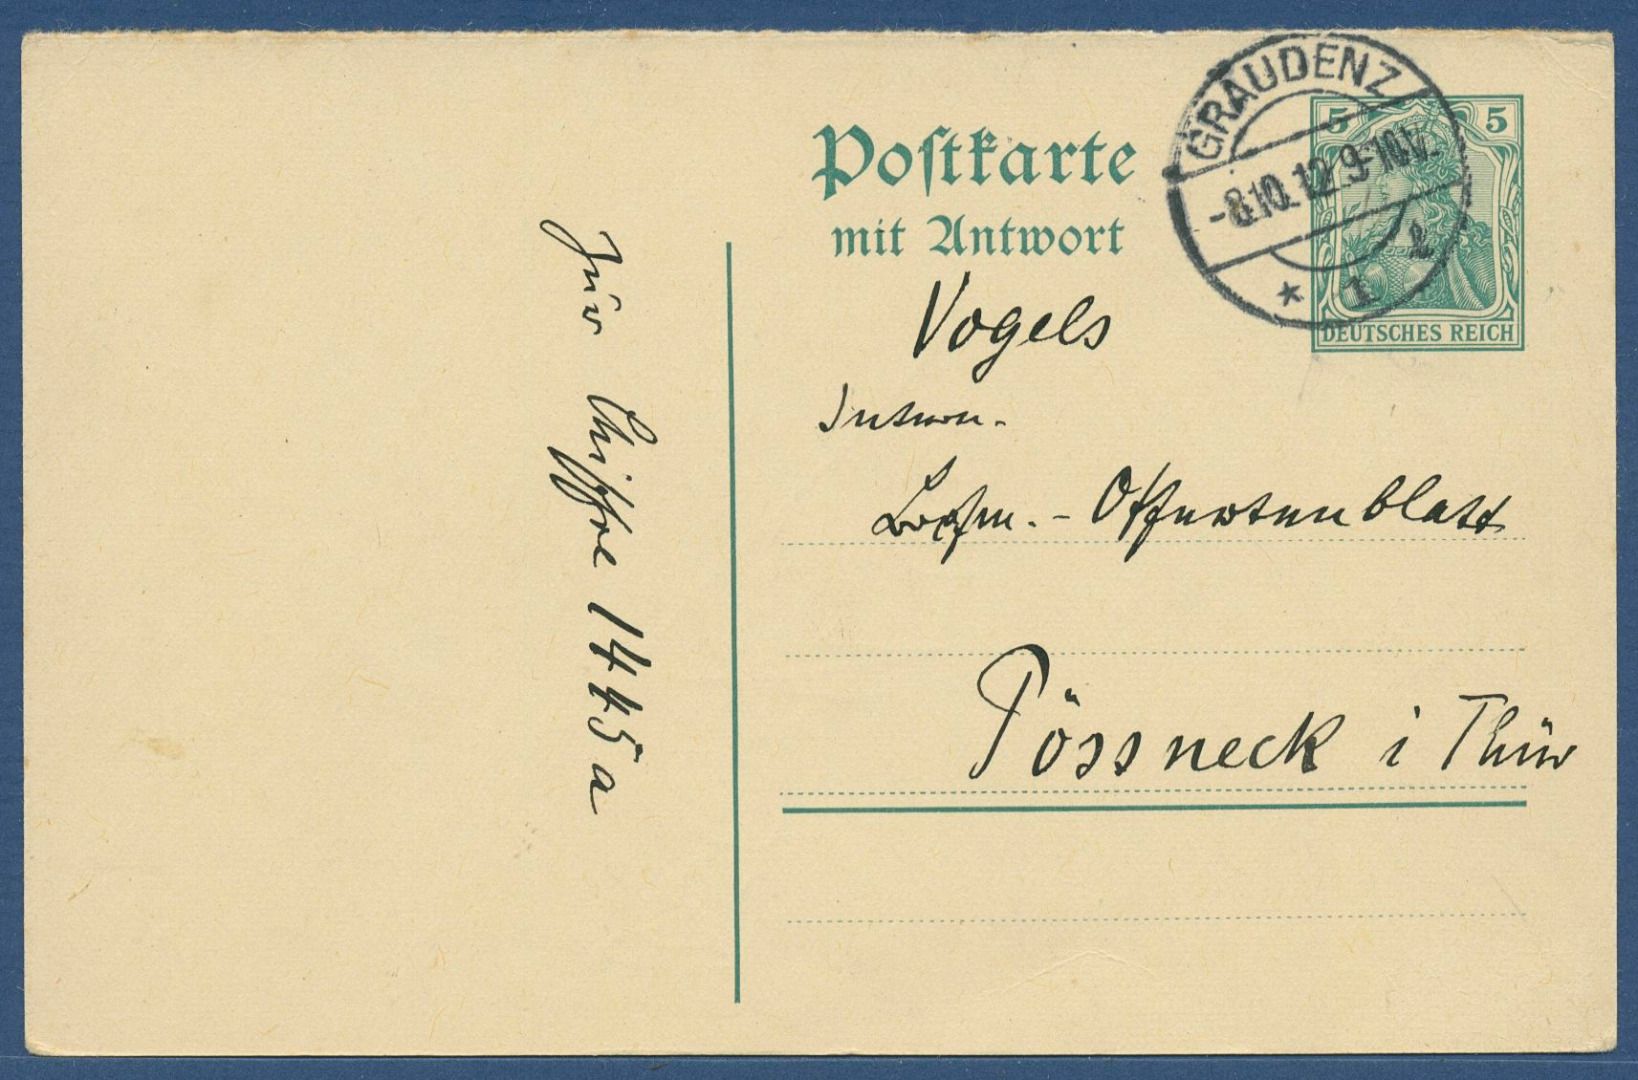 Postkarte
mit Antwort
GRAUDENZ
-8.10.12.9-10V.
* 1
5 5
DEUTSCHES REICH
Vogels
Offertenblatt
Pössneck i Thür
Für Chiffre 1445a